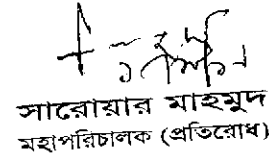 সারোয়ার মাহমুদ
মহাপরিচালক (প্রতিরোধ)